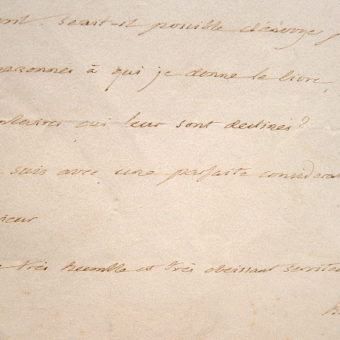 seroit-il possible d'envoyer
personnes à qui je donne le livre,
exemplaires qui leur sont destinés?
suis avec une parfaite considérat
sieur
très humble et très obeissant servite